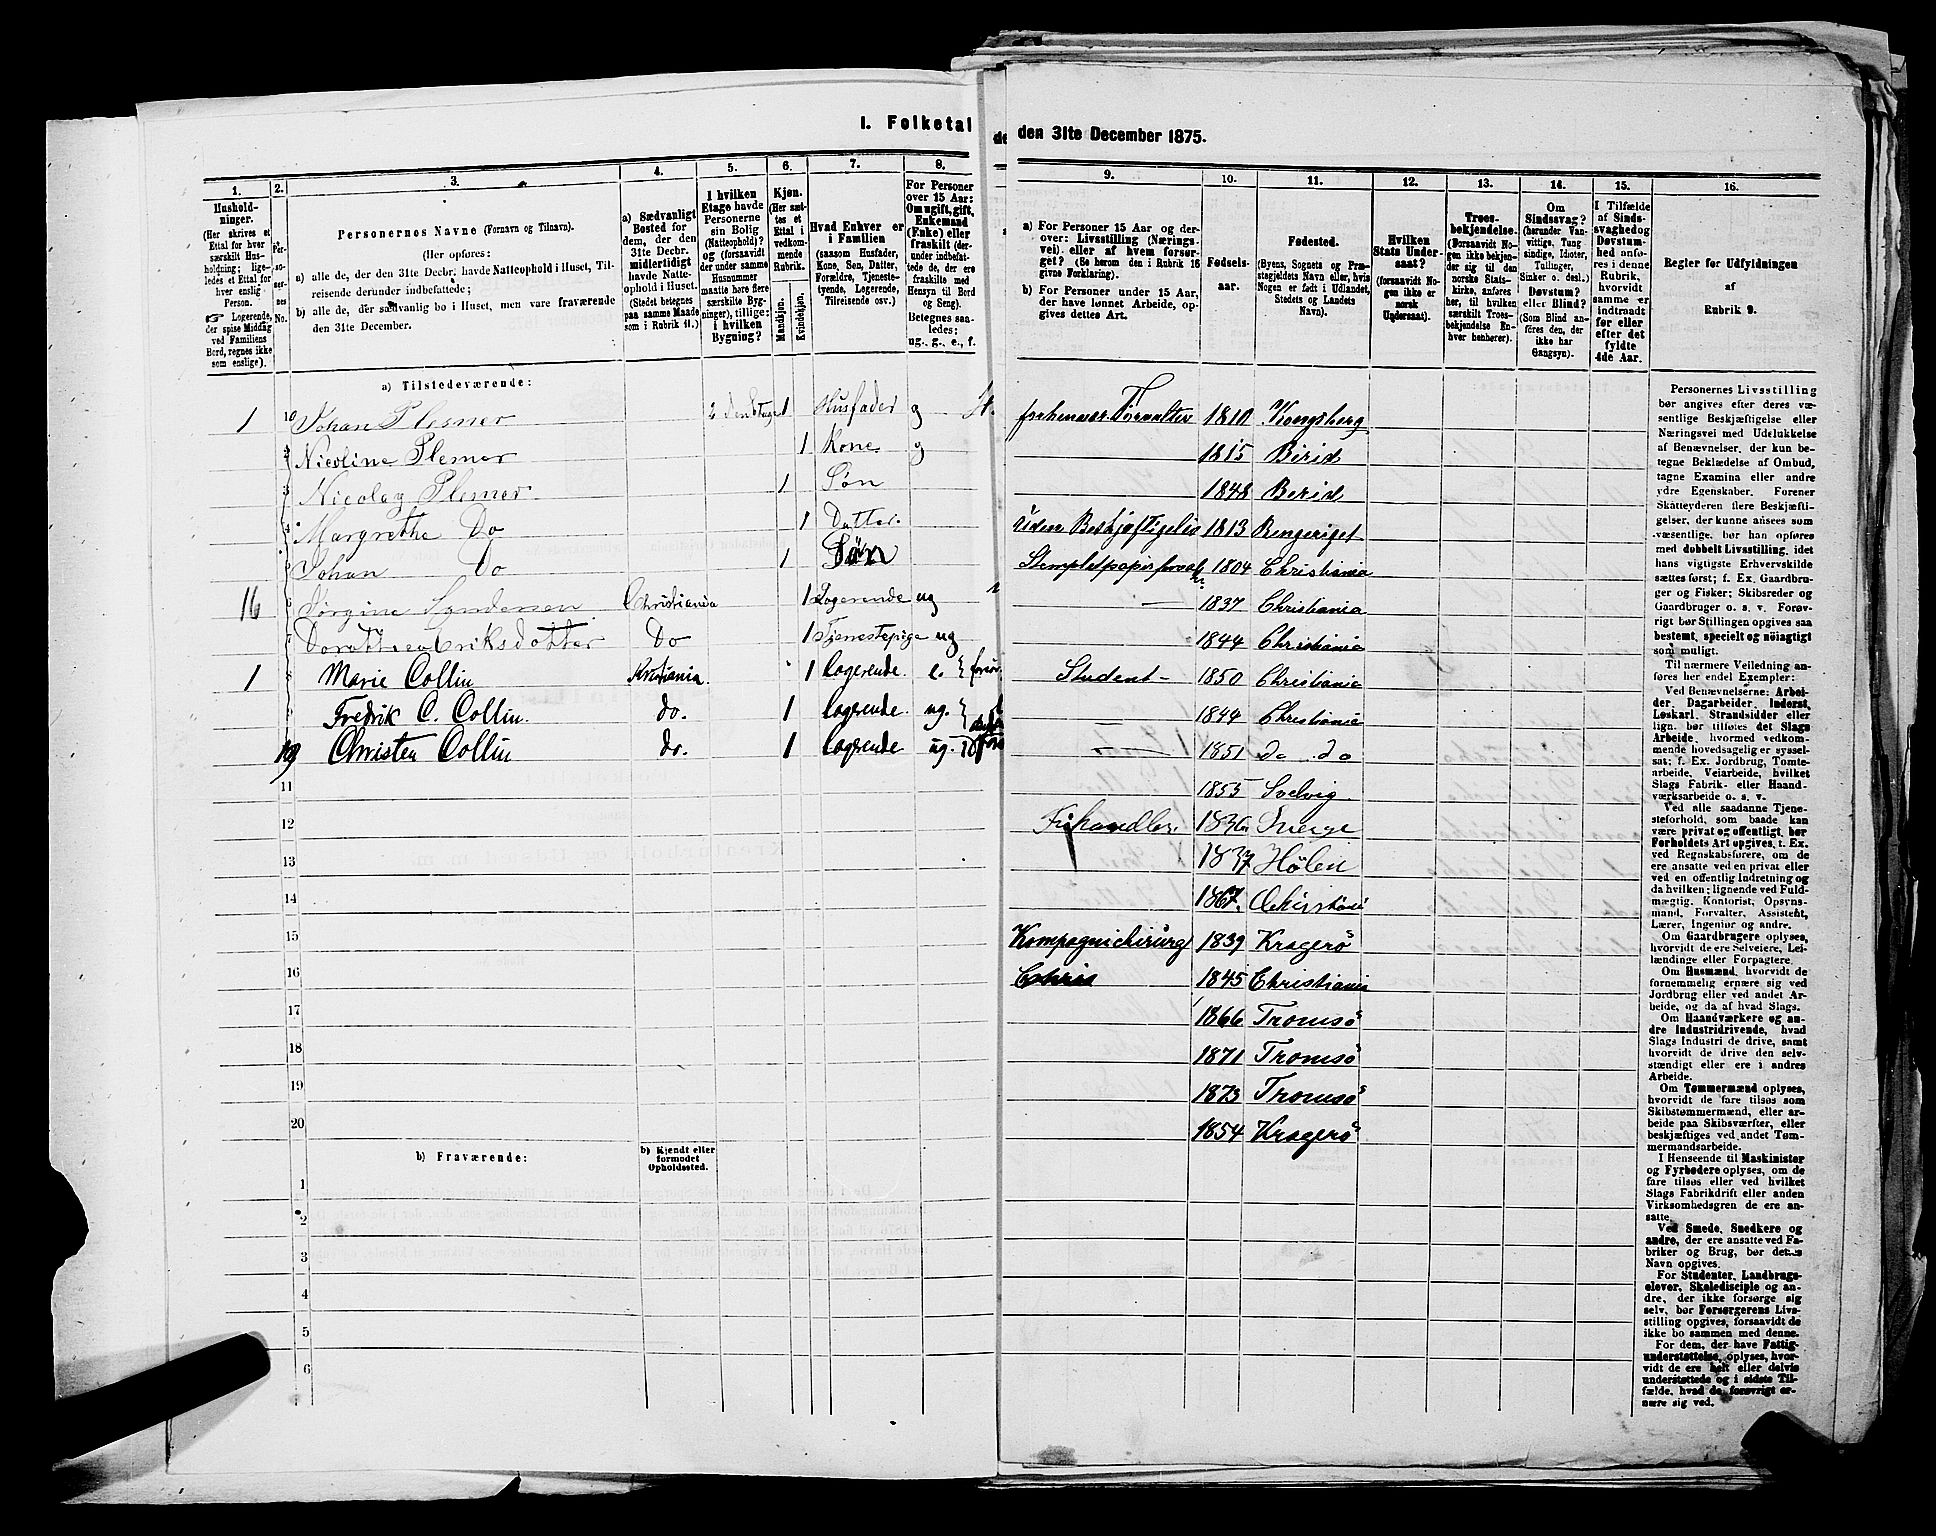 I. Folketal
de
den 31te December 1875.
1.
2.
3.
4.
5.
6.
7.
8.
Hushold-
ninger.
(Her skrives et
Ettal for hver
særskilt Hus-
holdning; lige-
ledes et Ettal for
hver enslig
Person.
☞ Logerende,
der spise Middag
ved Familiens
Bord, regnes ikke
som enslige).
Per-
so-
ner-
nes
No.
Personernes Navne (Fornavn og Tilnavn).
(Her opføres:
a) alle de, der den 31te Decbr. havde Natteophold i Huset, Til-
reisende derunder indbefattede;
b) alle de, der sædvanlig bo i Huset, men vare fraværende
den 31te December.
a) Sædvanligt
Bosted for
dem, der den
31te Decbr.
midlertidigt
havde Natte-
ophold i Huset.
(Stedet betegnes
paa samme Maade
som i Rubrik 11.)
I hvilken
Etage havde
Personerne
sin Bolig
(Natteophold)?
og (forsaavidt
der under samme
Husnummer
maatte høre flere
særskilte Byg-
ninger), tillige:
i hvilken
Bygning?
Kjøn.
(Her sæt-
tes et
Ettal i
vedkom-
mende
Rubrik.
Mandkjøn.
Kvindekjøn.
Hvad Enhver er
i Familien
(saasom Husfader,
Kone, Søn, Datter,
Forældre, Tjeneste-
tyende, Logerende,
Tilreisende osv.)
For Personer
over 15 Aar:
Om ugift, gift,
Enkemand
(Enke) eller
fraskilt (der-
under indbefat-
tede de, der ere
fraskilte med
Hensyn til Bord
og Seng).
Betegnes saa-
ledes:
ug., g., e., f.
a) Tilstedeværende:
1 Johan Plesner 2den Etage 1 Husfader g
2 Nicoline Plesner 1 Kone g
3 Nicolay Plesner 1 Søn
4 Margrethe Do 1 Datter
5 Johan Do 1 Søn
16 6 Jørgine Christiania 1 Logerende ug
7 Do 1 Tjenestepige ug
1 8 Marie Collin Kristiania 1 Logerende e.
9 Fredrik C. Collin. do. 1 Logerende ug.
10 Christen Collin do. 1 Logerende ug.
11
12
13
14
15
16
17
18
19
20
b) Fraværende:
b) Kjendt eller
formodet
Opholdssted.
1
2
3
4
5
6
9.
10.
11.
12.
13.
14.
15.
16.
a) For Personer 15 Aar og der-
over: Livsstilling (Nærings-
vei), eller af hvem forsør-
get? (Se herom den i Rubrik 16
givne Forklaring).
b) For Personer under 15 Aar,
der have lønnet Arbeide, op-
gives dettes Art.
Fødsels-
aar.
Fødested.
(Byens, Sognets og Præ-
stegjeldets Navn eller, hvis
Nogen er født i Udlandet,
Stedets og Landets
Navn).
Hvilken
Stats Under-
saat?
(forsaavidt No-
gen ikke er
norsk
Undersaat).
Troes-
bekjendelse.
(Forsaavidt No-
gen ikke bekjen-
der sig til den
norske Stats-
kirke, anføres
her, til hvilken
særskilt Troes-
bekjendelse En-
hver henhører).
Om
Sindssvag?
(herunder Van-
vittige, Tung-
sindige, Idioter,
Tullinger,
Sinker o. desl.).
Døvstum?
eller Blind?
(Som Blind an-
føres den, der
ikke har
Gangsyn).
I Tilfælde
af Sinds-
svaghed og
Døvstum-
hed anfø-
res i denne
Rubrik,
hvorvidt
samme er
indtraadt
før eller
efter det
fyldte
4de Aar.
Regler for Udfyldningen
af
Rubrik 9.
1810 Kongsberg
1815 Birid
1848 Berid
Uden 1813 Ringeriget
1804 Christiania
1837 Christiania
1844 Christiania
Student 1850 Christiania
1844 Christiania
1851 Do do
1855 Svelvig
1836 Sverge
1837 Hølen
1867
Kompagnichirurg 1839 Kragerö
Chris 1845 Christiania
1866 Tromsö
1871 Tromsö
1873 Tromsö
1854 Kragerö
Personernes Livsstilling
bør angives efter deres væ-
sentlige Beskjæftigelse eller
Næringsvei med Udelukkelse
af Benævnelser, der kun be-
tegne Beklædelse af Ombud,
tagne Examina eller andre
ydre Egenskaber. Forener
Skatteyderen flere Beskjæfti-
gelser, der kunne ansees som
væsentlige, bør han opføres
med dobbelt Livsstilling, idet
hans vigtigste Erhvervskilde
sættes først; f. Ex. Gaardbru-
ger og Fisker; Skibsreder og
Gaardbruger o. s. v. Forøv-
rigt bør Stillingen opgives saa
bestemt, specielt og nöiagtigt
som muligt.
Til nærmere Veiledning an-
føres her endel Exempler:
Ved Benævnelserne: Arbei-
der, Dagarbeider, Inderst,
Løskarl, Strandsidder eller
lign. bør tilføies det Slags
Arbeide, hvormed vedkom-
mende hovedsagelig er syssel-
sat; f. Ex. Jordbrug, Tomte-
arbeide, Veiarbeide, hvilket
Slags Fabrik- eller Haand-
værksarbeide o. s. v.
Ved alle saadanne Tjene-
steforhold, som baade kan
være privat og offentligt, bør
Forholdets Art opgives, t. Ex.
ved Regnskabsførere, om de
ere ansatte ved en privat eller
ved en offentlig Indretning og
da hvilken; lignende ved Fuld-
mægtig, Kontorist, Opsyns-
mand, Forvalter, Assistent,
Lærer, Ingeniør og andre.
Om Gaardbrugere oplyses,
hvorvidt de ere Selveiere, Lei-
lændinge eller Forpagtere.
Om Husmænd, hvorvidt de
fornemmelig ernære sig ved
Jordbrug eller ved andet Ar-
beide, og da af hvad Slags.
Om Haandværkere og an-
dre Industridrivende, hvad
Slags Industri de drive, samt
hvorvidt de drive den selv-
stændigt eller ere i andres
Arbeide.
Om Tømmermænd oplyses,
hvorvidt de fare tilsøs som
Skibstømmermænd, eller ar-
beide paa Skibsværfter, eller
beskjæftiges ved andet Tøm-
mermandsarbeide.
I Henseende til Maskinister
og Fyrbødere oplyses, om de
fare tilsøs eller ved hvilket
Slags Fabrikdrift eller anden
Virksomhedsgren de ere an-
satte.
Ved Smede, Snedkere og
andre, der ere ansatte ved Fa-
briker og Brug, bør dettes
Navn opgives.
For Studenter, Landbrugs-
elever, Skoledisciple og an-
dre, der ikke forsørge sig
selv, bør Forsørgerens Livs-
stilling opgives, forsaavidt de
ikke bo sammen med denne.
For dem, der have Fattig-
understøttelse, oplyses, hvor-
vidt de ere helt eller delvis
understøttede og i sidste Til-
fælde, hvad de forøvrigt er-
nære sig ved.